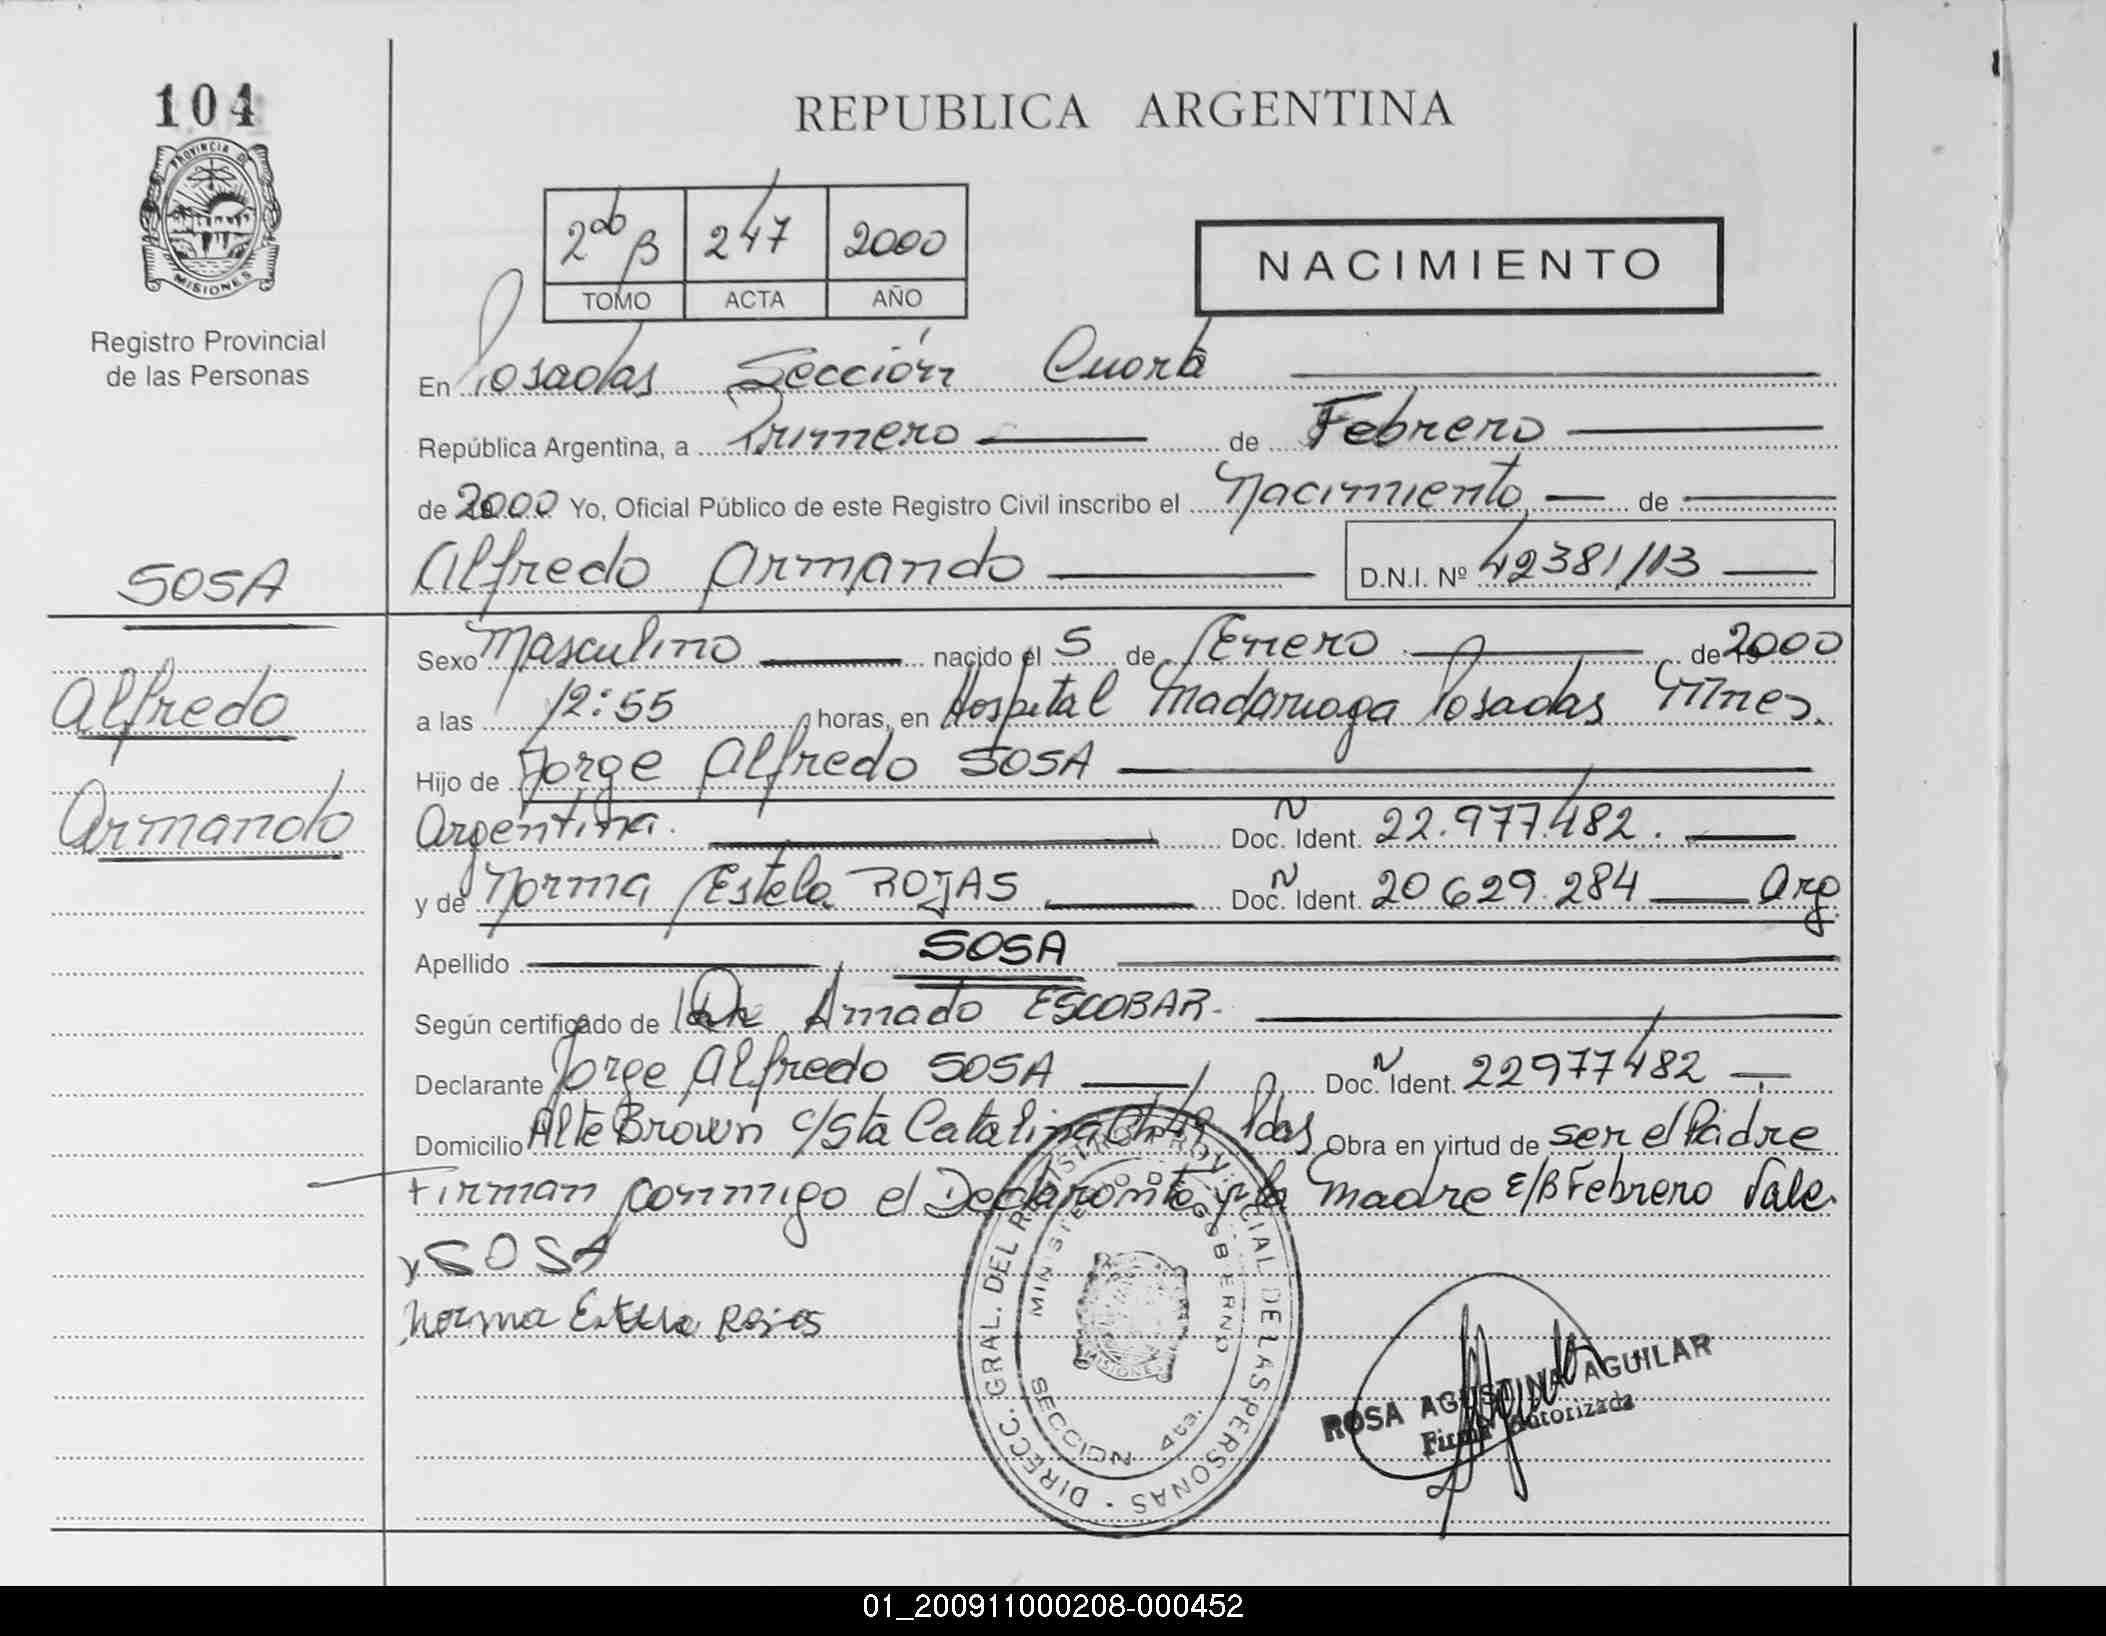 104
PROVINCIA DE
MISIONES
Registro Provincial
de las Personas
SOSA
Alfredo
Armando
REPUBLICA ARGENTINA
2do B 247 2000
TOMO ACTA AÑO
NACIMIENTO
En Posadas Sección Cuarta
República Argentina, a Primero de Febrero
de 2000 Yo, Oficial Público de este Registro Civil inscribo el Nacimiento de
Alfredo Armando D.N.I. Nº 42381113
Sexo Masculino nacido el 5 de Enero de 2000
a las 12:55 horas, en Hospital Madariaga Posadas Mnes.
Hijo de Jorge Alfredo SOSA
Argentina. Doc. Ident. 22.977.482.
y de Norma Estela ROJAS Doc. Ident. 20 629.284 Arg
Apellido SOSA
Según certificado de Dr Amado ESCOBAR.
Declarante Jorge Alfredo SOSA Doc. Ident. 22977482
Domicilio Alte Brown c/Sta Catalina Ch 49 Pdas Obra en virtud de ser el Padre
Firman conmigo el Declarante y la Madre E/B Febrero Vale.
SOSA
Norma Estela Rojas
DIRECC. GRAL. DEL REGISTRO PROVINCIAL DE LAS PERSONAS
MINISTERIO DE GOBIERNO
MISIONES
SECCION 4ta.
ROSA AGUSTINA AGUILAR
Firma Autorizada
01_200911000208-000452